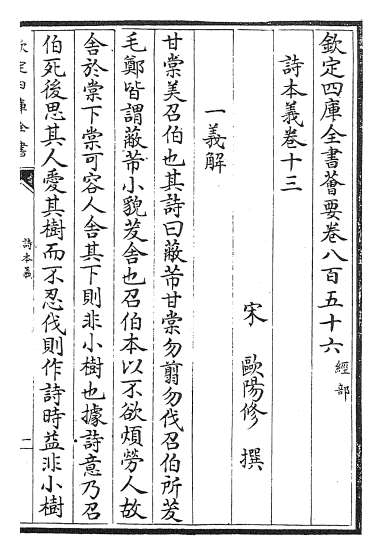 欽定四庫全書薈要卷八百五十六 經部
詩本義卷十三
宋 歐陽修 撰
一義解
甘棠美召伯也其詩曰蔽芾甘棠勿翦勿伐召伯所茇
毛鄭皆謂蔽芾小貌茇舍也召伯本以不欲煩勞人故
舍於棠下棠可容人舍其下則非小樹也據詩意乃召
伯死後思其人愛其樹而不忍伐則作詩時益非小樹
欽定四庫全書
詩本義